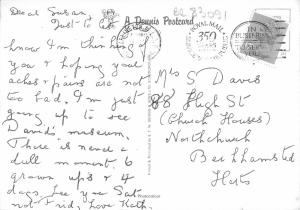 Dear Susan,
Just to let
A Dennis Postcard
ROYAL MAIL
350
know I'm thinking of
you & hoping your
aches & pains are not
too bad. I'm just
going up to see
David's museum.
There is never a
dull moment, 6
grown ups & 4
days. See you Sat.
not Frid. Love Kath.
Mrs S Davis
88 High St
(Church Houses)
Northchurch
Berkhamsted
Herts